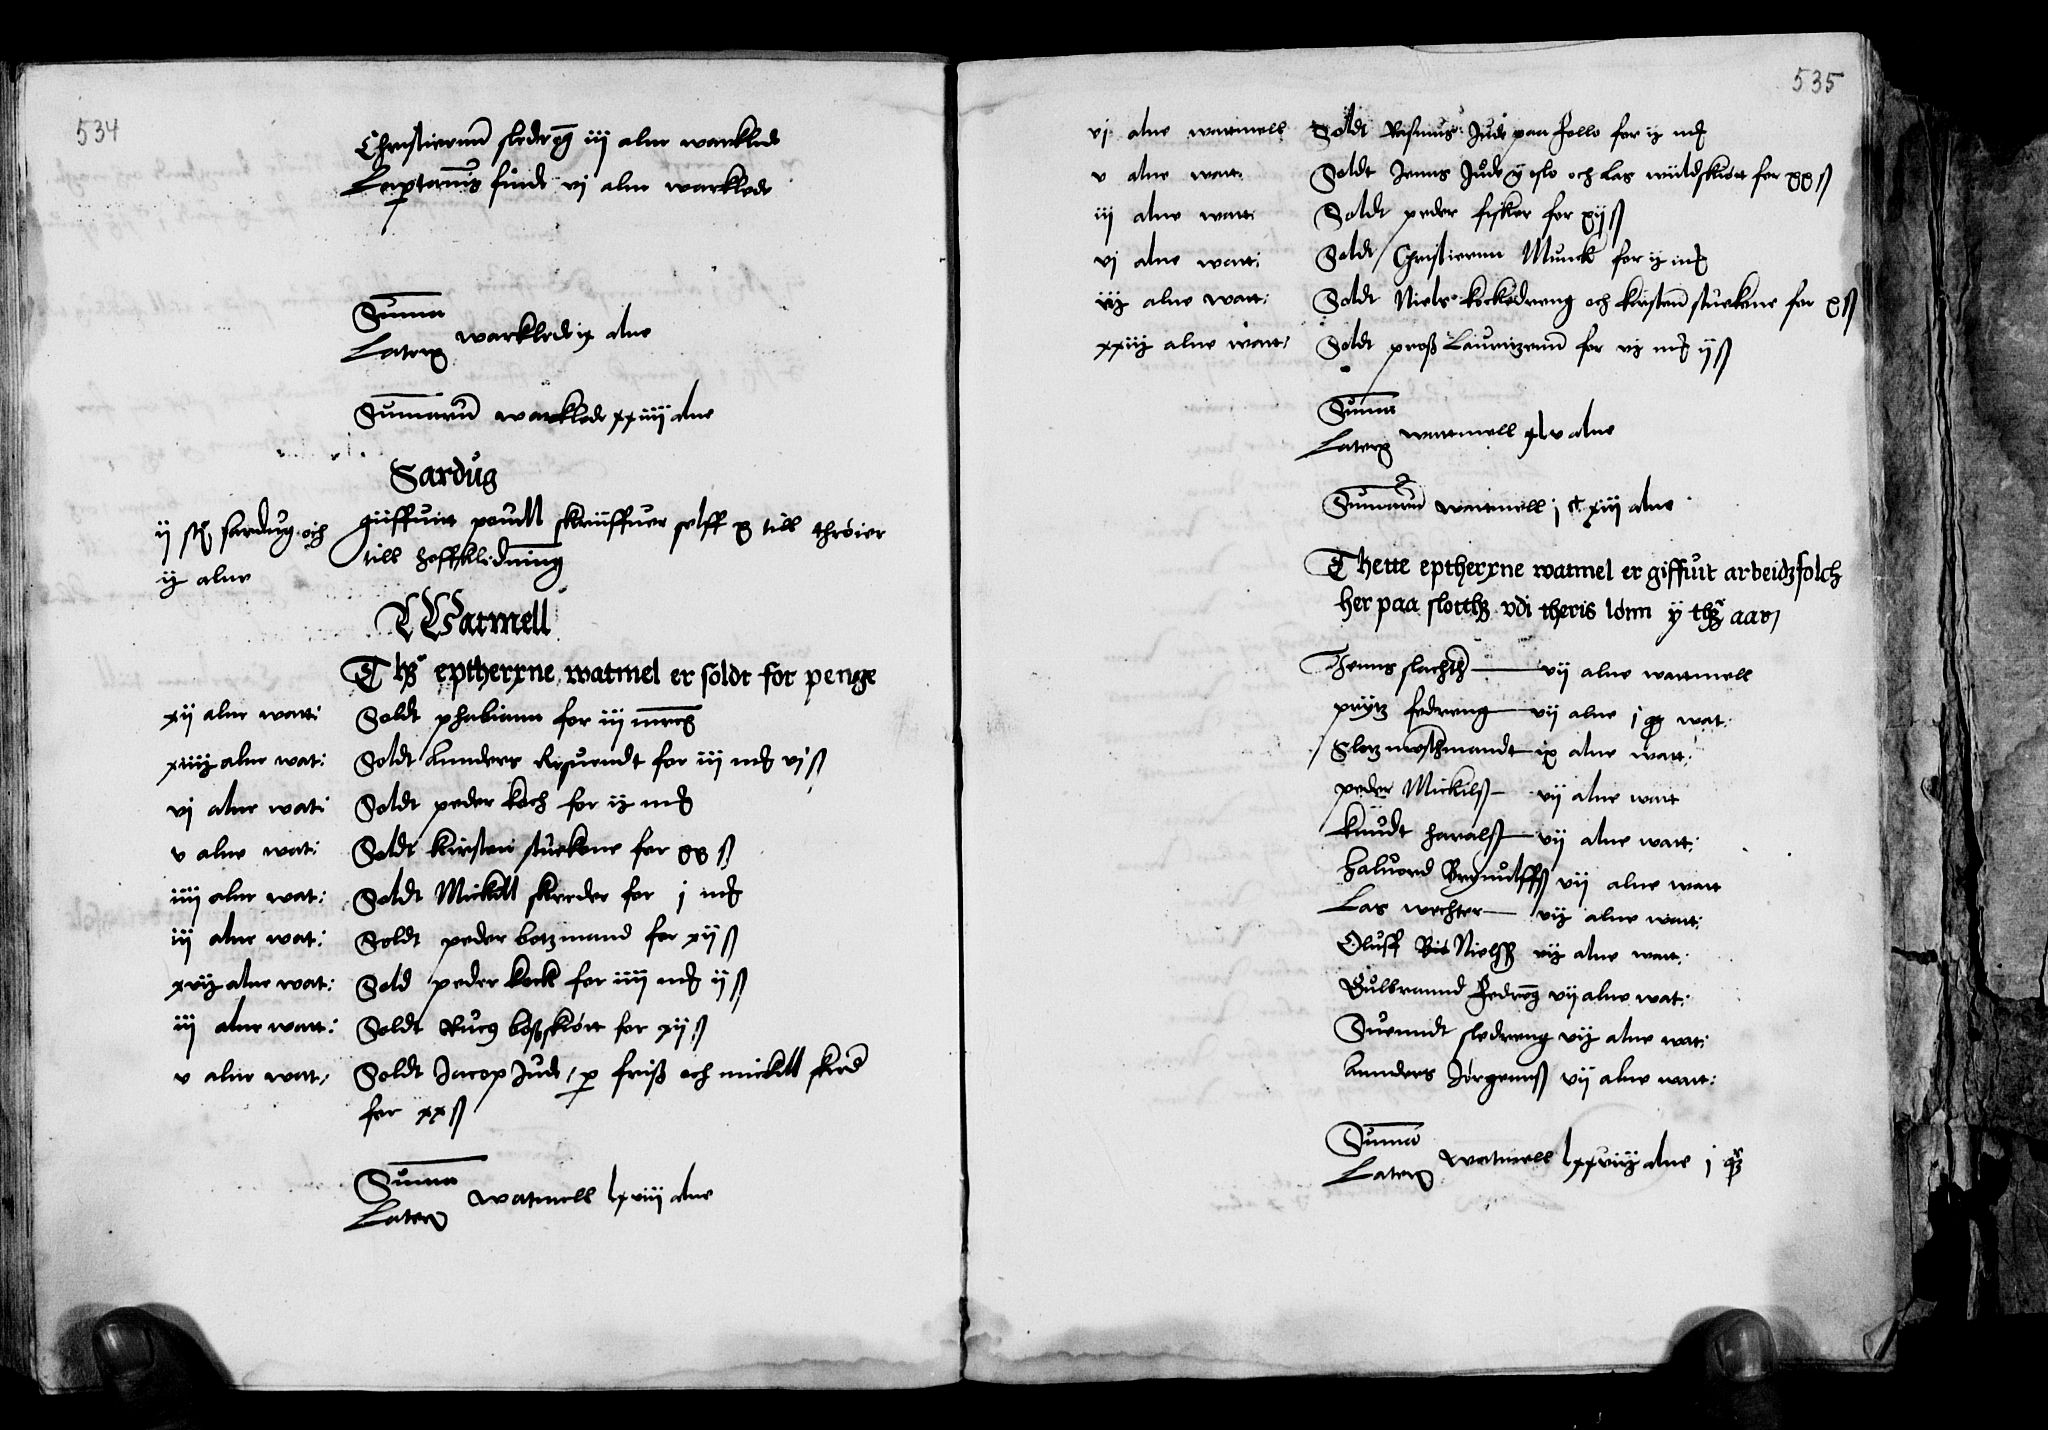 534
Christiernn sledreng iij alne warklede
Captanis suinde vj alne warklede
Summa
Lateris warklede ix alne
Summarum warklede xxiiij alne
Sardug
ij stk sardug och giffuitt pouell skriiffuer selff x till thrøier
ij alne till hoffklædning
Watmell
Thz epthersne watmel er soldt for penge
xij alne watt: Soldt phabiann for iiij marc
xiiij alne wat: Soldt Annders Resuendt for iiij mk vj ß
vj alne wat: Soldt peder koch for ij mk
v alne wat: Soldt kirsten stuekone for xx ß
iiij alne wat: Soldt Mickell skreder for j mk
iij alne wat: Soldt peder botzmand for xij ß
xvij alne wat: Sold peder kock for iiij mk ij ß
iij alne watt: Soldt Burg bosskiøtt for xij ß
v alne wat: Soldt Jacop Jude, p friiß och mickell skred
for xx ß
Summa
Lateris watmell lxviij alne
535
vj alne wattmell Soldt Rasmus Jude paa follo for ij mk
v alne watt: Soldt Jenns Jude y oslo och Las wiildskiøtt for xx ß
iij alne watt: Soldt peder fisker for xij ß
vj alne watt: Soldt Christiernn Munck for ij mk
iij alne watt: Soldt Niels kockedreng och kirstenn stuekone for x ß
xxij alne watt: Soldt proß Lauritzenn for vij mk ij ß
Summa
Lateris wattmell xlv alne
Summarum wattmell j c xiij alne
Thette epthersne watmel er giffuit arbeidzfolch
her paa slotthz vdi theris lønn y thz aar
Jenns slachth vij alne wattmell
prytz fedreng vij alne j qr wat:
Slotz nothmandt ix alne watt:
peder Mickilß vij alne watt
knudt haralß vij alne watt:
haluord Brynulffß vij alne watt
Las wechter vij alne watt:
Oluff Nielß vij alne watt:
Gulbrannd fedreng vij alne wat:
Suenndt sledreng vij alne wat:
Annders Jørgennß vij alne watt:
Summa
Lateris watmell lxxviij alne j qr